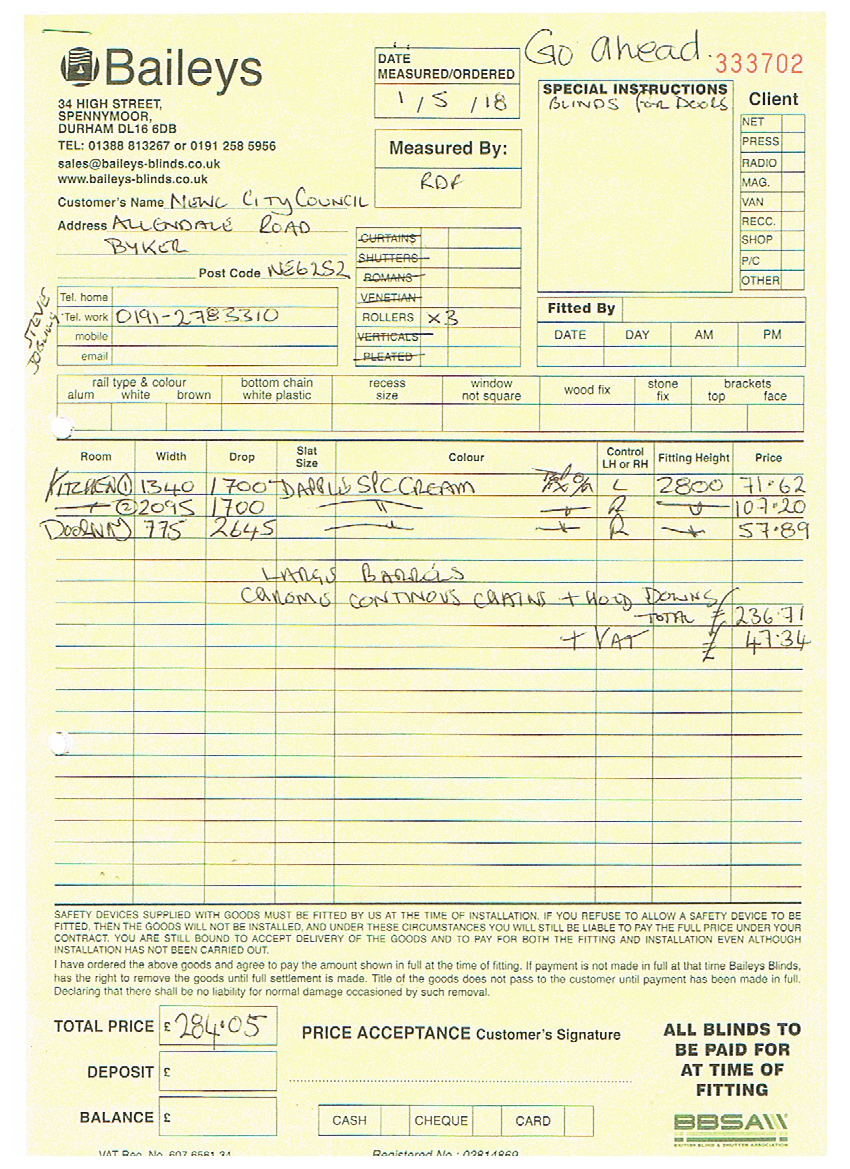 Go ahead.
333702
Baileys
34 HIGH STREET,
SPENNYMOOR,
DURHAM DL16 6DB
TEL: 01388 813267 or 0191 258 5956
sales@baileys-blinds.co.uk
www.baileys-blinds.co.uk
DATE
MEASURED/ORDERED
1 / 5 / 18
Measured By:
RDF
SPECIAL INSTRUCTIONS
BLINDS FOR DOORS
Client
NET
PRESS
RADIO
MAG.
VAN
RECC.
SHOP
P/C
OTHER
Customer's Name NEWC CITY COUNCIL
Address ALLENDALE ROAD
BYKER
Post Code NE6 2SZ
CURTAINS
SHUTTERS
ROMANS
VENETIAN
ROLLERS x3
VERTICALS
PLEATED
STEVE
Tel. home
Tel. work 0191-2783310
mobile
email
Fitted By
DATE DAY AM PM
rail type & colour bottom chain recess window wood fix stone brackets
alum white brown white plastic size not square fix top face
Room Width Drop Slat Size Colour Control LH or RH Fitting Height Price
KITCHEN ① 1340 1700 SPC CREAM L 2800 71.62
② 2095 1700 " R 107.20
DOORWAY 775 2645 " R 57.89
LARGE BARRELS
CHROME CONTINOUS CHAINS + HOLD DOWNS
TOTAL £ 236.71
+ VAT £ 47.34
SAFETY DEVICES SUPPLIED WITH GOODS MUST BE FITTED BY US AT THE TIME OF INSTALLATION. IF YOU REFUSE TO ALLOW A SAFETY DEVICE TO BE
FITTED, THEN THE GOODS WILL NOT BE INSTALLED, AND UNDER THESE CIRCUMSTANCES YOU WILL STILL BE LIABLE TO PAY THE FULL PRICE UNDER YOUR
CONTRACT. YOU ARE STILL BOUND TO ACCEPT DELIVERY OF THE GOODS AND TO PAY FOR BOTH THE FITTING AND INSTALLATION EVEN ALTHOUGH
INSTALLATION HAS NOT BEEN CARRIED OUT.
I have ordered the above goods and agree to pay the amount shown in full at the time of fitting. If payment is not made in full at that time Baileys Blinds,
has the right to remove the goods until full settlement is made. Title of the goods does not pass to the customer until payment has been made in full.
Declaring that there shall be no liability for normal damage occasioned by such removal.
TOTAL PRICE £ 284.05
DEPOSIT £
BALANCE £
PRICE ACCEPTANCE Customer's Signature
CASH CHEQUE CARD
ALL BLINDS TO
BE PAID FOR
AT TIME OF
FITTING
BBSA
BRITISH BLIND & SHUTTER ASSOCIATION
VAT Reg. No. 607 6561 34
Registered No.: 02814869